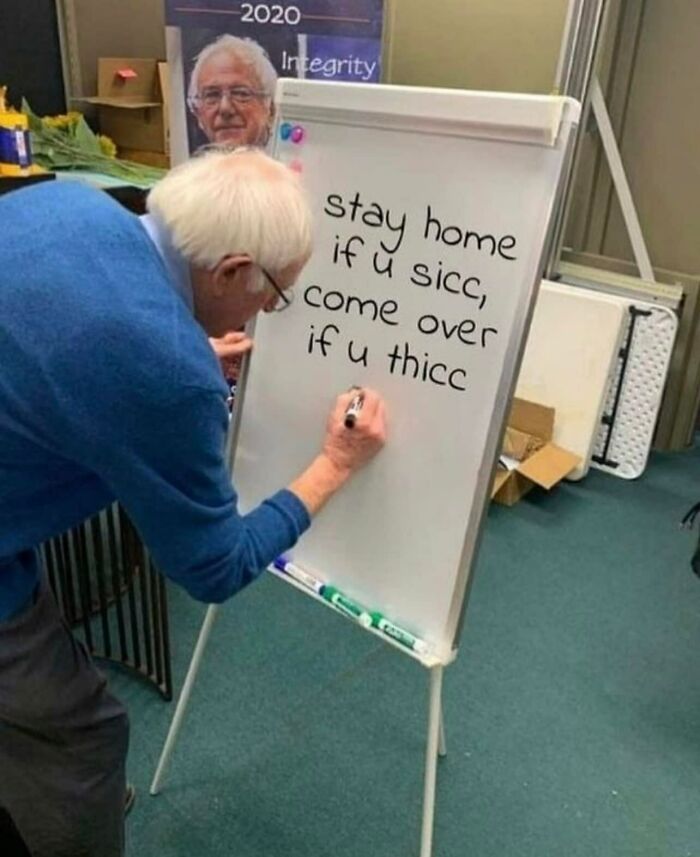 2020
Integrity
stay home
if u sicc,
come over
if u thicc